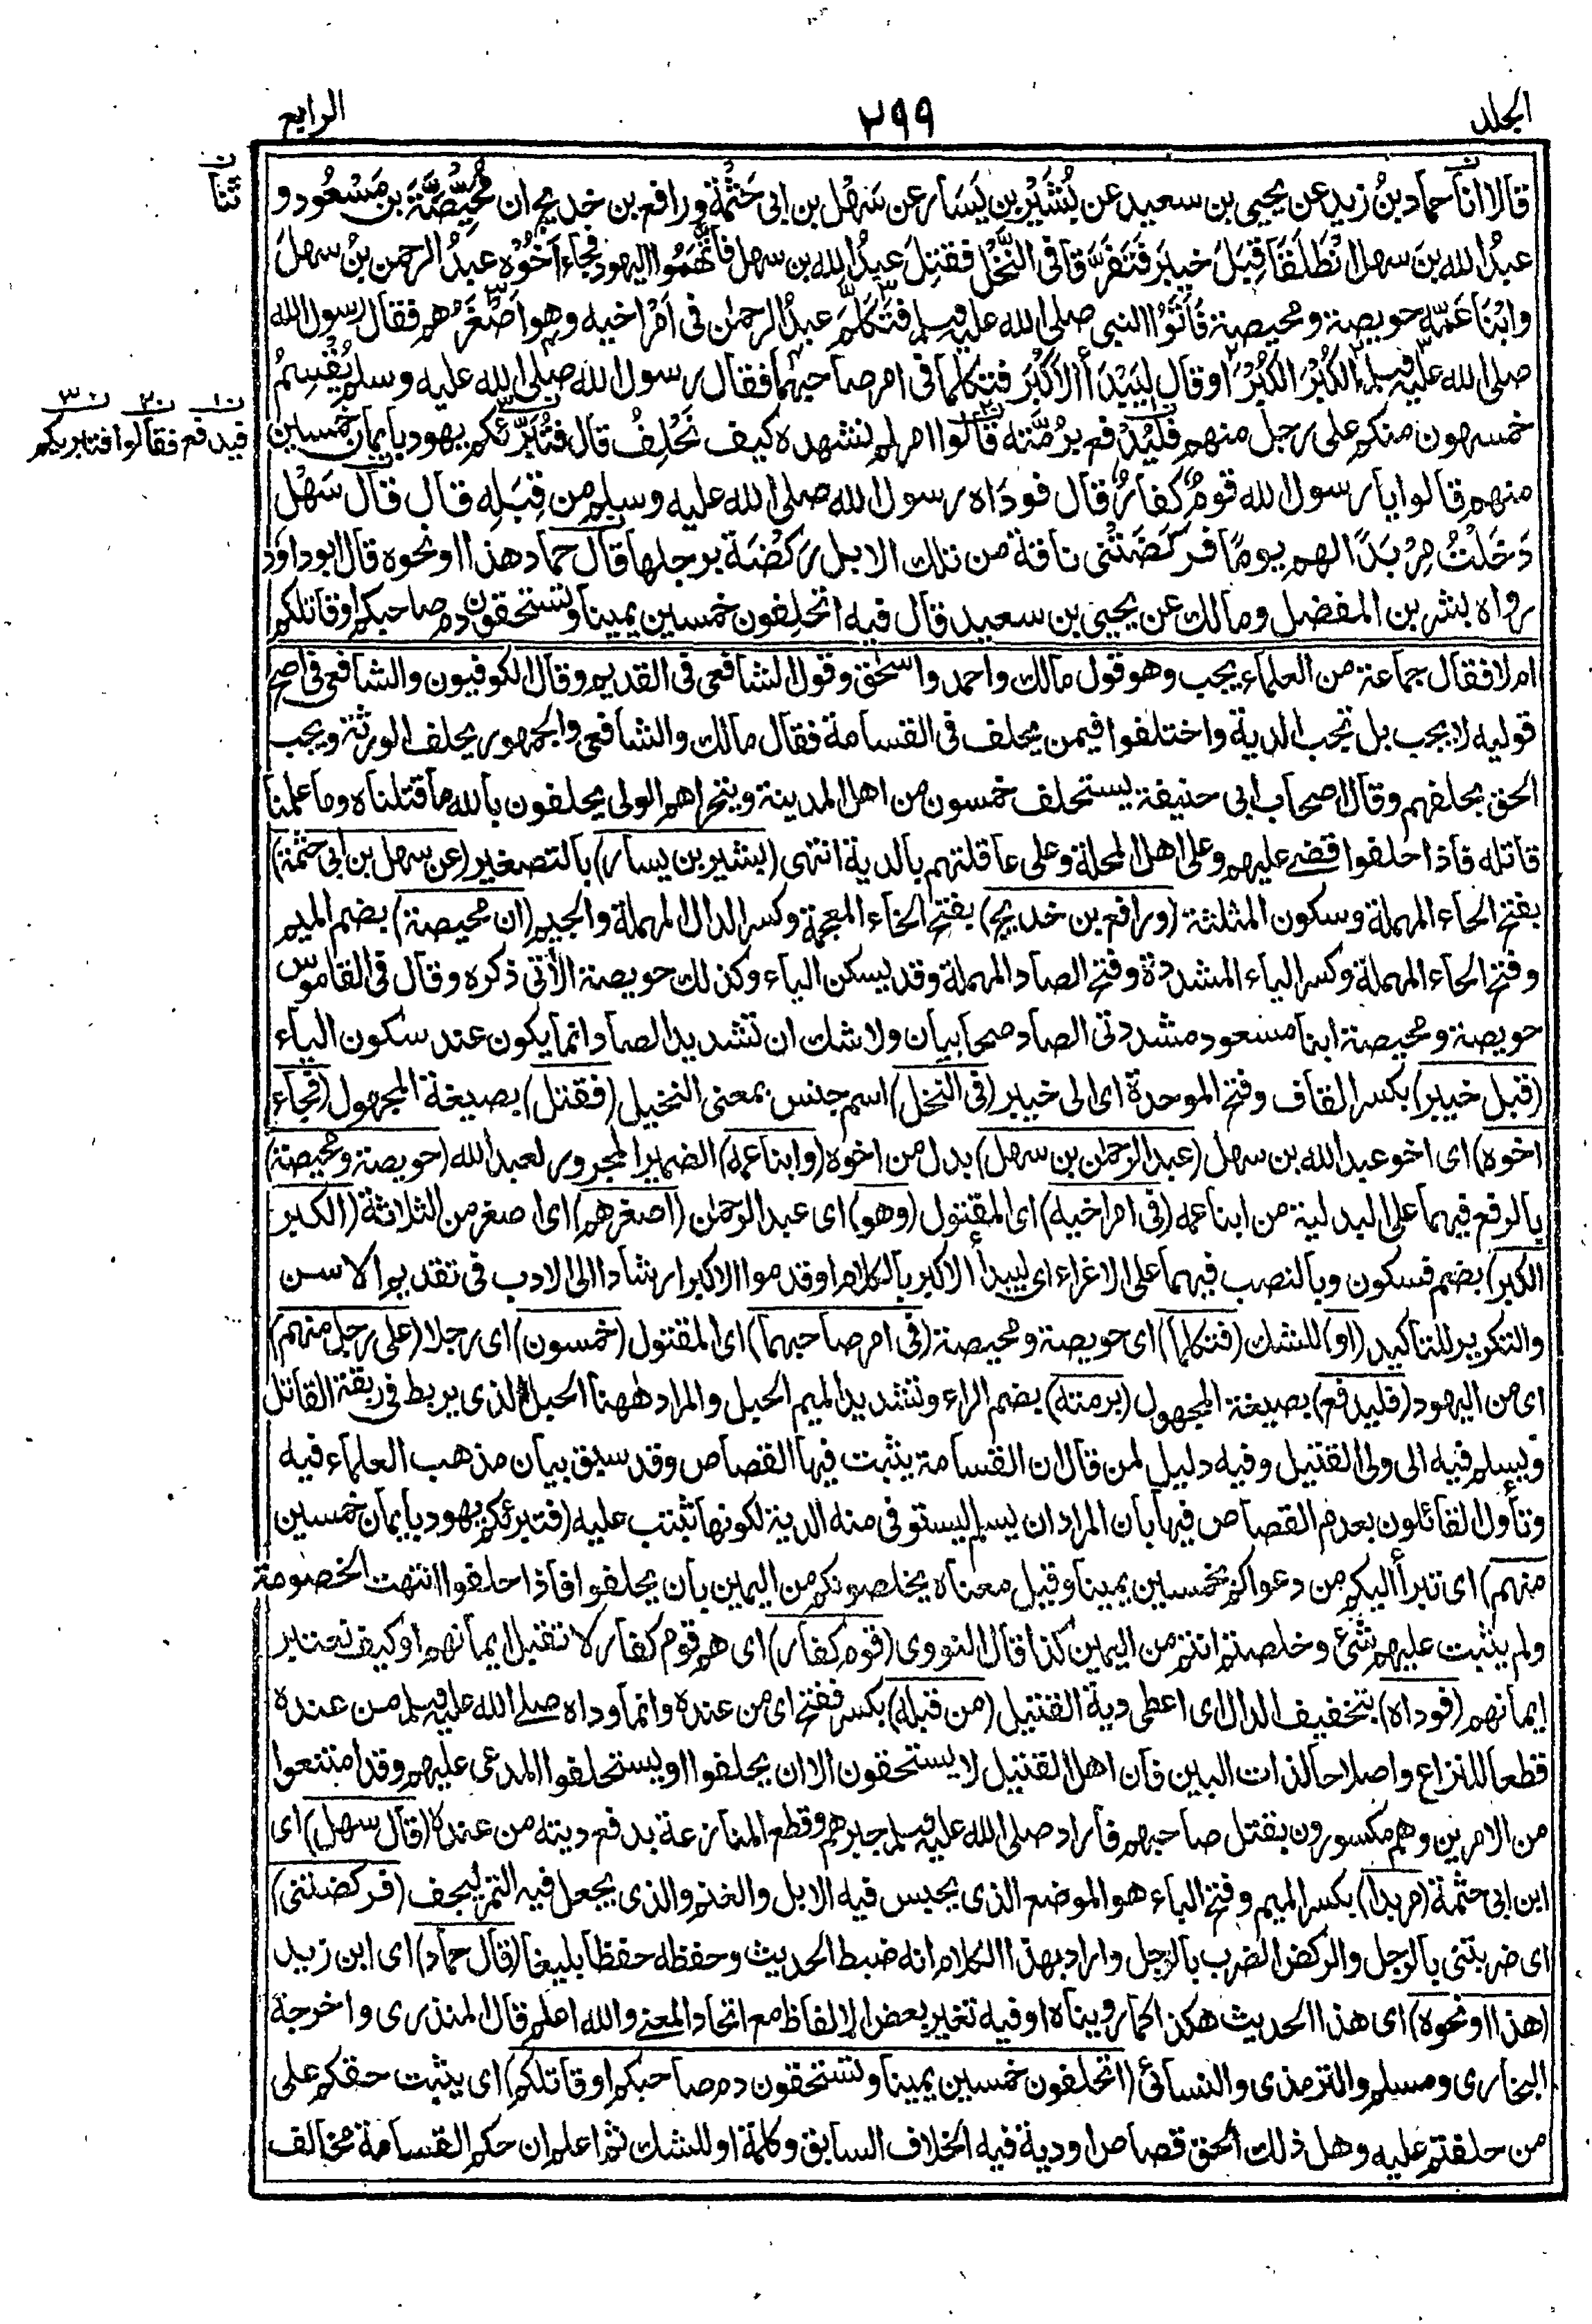 المجلد ٢٩٩ الرابع
قالا انا حماد بنُ زيد عن يحيى بن سعيد عن بُشَيْر بن يَسَار عن سَهْل بن ابى حَثْمَةَ ورافع بن خديج ان مُحَيِّصَةَ بن مَسْعُود و
ن ثنا
عبدُ الله بنَ سهل انْطَلَقَا قِبَلَ خيبر فَتَفَرَّقا فى النَّخْل فقُتِلَ عبدُ الله بن سهل فاتَّهَمُوا اليهود فجاء اَخُوْه عبدُ الرحمن بنُ سهل
وابْنَا عَمِّه حويصة ومحيصة فَاَتَوُا النبى صلى الله عليه وسلم فتَكَلَّمَ عبدُ الرحمٰن فى اَمْر اخيه وهو اَصْغَرُهم فقال رسول الله
صلى الله عليه وسلم اَلكُبْرَ الكُبْرَ او قال لِيَبْدَأ الاَكْبَر فتكلما فى امر صاحبهما فقال رسول الله صلى الله عليه وسلم يُقْسِمُ
خمسون منكم على رجل منهم فَلْيُدْفَع بِرُمَّتِه قالوا امر لم نشهده كيف نَحْلِفُ قال فتُبَرِّئكم يهود بايمان خمسين
ن١ ن٢ ن٣
فيدفع فقالوا فتبريكم
منهم قالوا يا رسول الله قومٌ كفارٌ قال فودَاه رسول الله صلى الله عليه وسلم من قِبَلِه قال قال سَهْل
دَخَلْتُ مِرْبَدًا لهم يومًا فركَضَتْنى ناقة من تلك الابل رَكْضَة برجلها قال حماد هذا او نحوه قال ابوداود
رواه بشر بن المفضل ومالك عن يحيى بن سعيد قال فيه اتحلِفون خمسين يمينا وتستحقون دم صاحبكم او قاتلكم
ام لا فقال جماعة من العلماء يجب وهو قول مالك واحمد واسحٰق وقول الشافعى فى القديم وقال الكوفيون والشافعى فى اصح
قوليه لا يجب بل تجب الدية واختلفوا فيمن يحلف فى القسامة فقال مالك والشافعى والجمهور يحلف الورثة ويجب
الحق بحلفهم وقال اصحاب ابى حنيفة يستحلف خمسون من اهل المدينة ويتحراهم الولى يحلفون بالله ما قتلناه وما علمنا
قاتله فاذا حلفوا قضے عليهم وعلى اهل المحلة وعلى عاقلتهم بالدية انتهى (بشير بن يسار) بالتصغير (عن سهل بن ابى حثمة)
بفتح الحاء المهملة وسكون المثلثة (ورافع بن خديج) بفتح الخاء المعجمة وكسر الدال المهملة والجيم (ان محيصة) بضم الميم
وفتح الحاء المهملة وكسر الياء المشددة وفتح الصاد المهملة وقد يسكن الياء وكذلك حويصة الآتى ذكره وقال فى القاموس
حويصة ومحيصة ابنا مسعود مشددتى الصاد صحابيان ولا شك ان تشديد الصاد انما يكون عند سكون الياء
(قبل خيبر) بكسر القاف وفتح الموحدة اى الى خيبر (فى النخل) اسم جنس بمعنى النخيل (فقتل) بصيغة المجهول (فجاء
اخوه) اى اخو عبد الله بن سهل (عبد الرحمٰن بن سهل) بدل من اخوه (وابنا عمه) الضمير المجرور لعبد الله (حويصة ومحيصة)
بالرفع فيهما على البدلية من ابنا عمه (فى امر اخيه) اى المقتول (وهو) اى عبد الرحمٰن (اصغرهم) اى اصغر من الثلاثة (الكبر
الكبر) بضم فسكون وبالنصب فيهما على الاغراء اى ليبدأ الاكبر بالكلام او قدموا الاكبر ارشادا الى الادب فى تقديم الاسن
والتكرير للتاكيد (او) للشك (فتكلما) اى حويصة ومحيصة (فى امر صاحبهما) اى المقتول (خمسون) اى رجلا (على رجل منهم)
اى من اليهود (فليدفع) بصيغة المجهول (برمته) بضم الراء وتشديد الميم الحبل والمراد ههنا الحبل الذى يربط فى ربقة القاتل
ويسلم فيه الى ولى القتيل وفيه دليل لمن قال ان القسامة يثبت فيها القصاص وقد سبق بيان مذهب العلماء فيه
وتأول القائلون بعدم القصاص فيها بان المراد ان يسلم ليستوفى منه الدية لكونها ثبتت عليه (فتبرئكم يهود بايمان خمسين
منهم) اى تبرأ اليكم من دعواكم بخمسين يمينا وقيل معناه يخلصونكم من اليمين بان يحلفوا فاذا حلفوا انتهت الخصومة
ولم يثبت عليهم شئ وخلصتم انتم من اليمين كذا قال النووى (قوم كفار) اى هم قوم كفار لا تقبل ايمانهم او كيف نعتبر
ايمانهم (فوداه) بتخفيف الدال اى اعطى دية القتيل (من قبله) بكسر ففتح اى من عنده وانما وداه صلے الله عليه وسلم من عنده
قطعا للنزاع واصلاحا لذات البين فان اهل القتيل لا يستحقون الا ان يحلفوا او يستحلفوا المدعى عليهم وقد امتنعوا
من الامرين وهم مكسورون بقتل صاحبهم فاراد صلى الله عليه وسلم جبرهم وقطع المنازعة بدفع ديته من عنده (قال سهل) اى
ابن ابى حثمة (مربدا) بكسر الميم وفتح الباء هو الموضع الذى يحبس فيه الابل والغنم والذى يجعل فيه التمر ليجف (فركضتنى)
اى ضربتنى بالرجل والركض الضرب بالرجل واراد بهذا الكلام انه ضبط الحديث وحفظه حفظا بليغا (قال حماد) اى ابن زيد
(هذا او نحوه) اى هذا الحديث هكذا كما رويناه او فيه تغير بعض الالفاظ مع اتحاد المعنے والله اعلم قال المنذرى واخرجه
البخارى ومسلم والترمذى والنسائى (اتحلفون خمسين يمينا وتستحقون دم صاحبكم او قاتلكم) اى يثبت حقكم على
من حلفتم عليه وهل ذلك الحق قصاص او دية فيه الخلاف السابق وكلمة او للشك ثم اعلم ان حكم القسامة مخالف